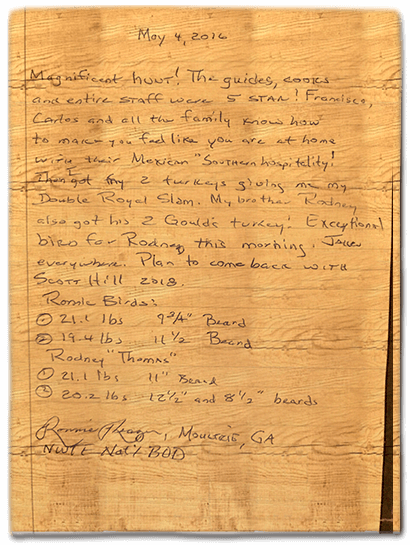 May 4, 2016
Magnificent HUNT! The guides, cooks
and entire staff were 5 STAR! Francisco,
Carlos and all the family know how
to make you feel like you are at home
with their Mexican "Southern hospitality!
Then I got my 2 turkeys giving me my
Double Royal Slam. My brother Rodney
also got his 2 Gould's turkey! Exceptional
bird for Rodney this morning.
everywhere. Plan to come back with
Scott Hill 2018.
Ronnie Birds:
① 21.1 lbs 9 3/4" Beard
② 19.4 lbs 11 1/2 Beard
Rodney "Thomas"
① 21.1 lbs 11" Beard
② 20.2 lbs 12 1/2" and 8 1/2" beards
Ronnie, Moultrie, GA
NWTF Nat'l BOD